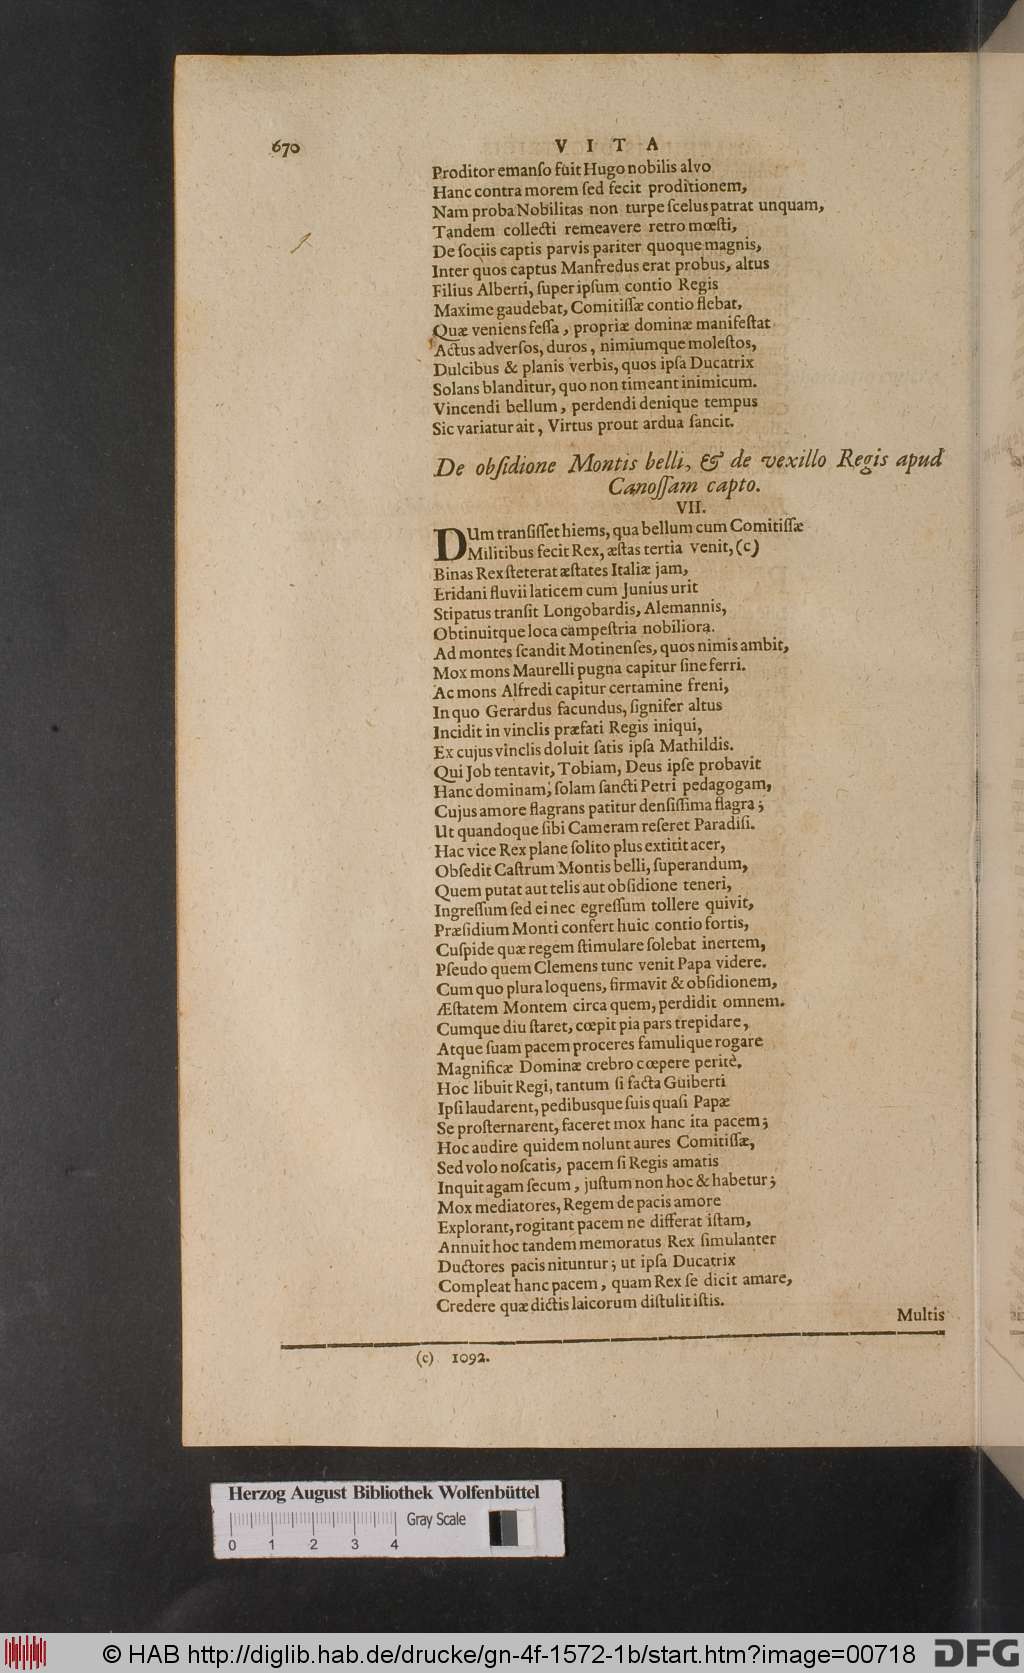 670
VITA
Proditor emanſo fuit Hugo nobilis alvo
Hanc contra morem ſed fecit proditionem,
Nam proba Nobilitas non turpe ſcelus patrat unquam,
Tandem collecti remeavere retro mœſti,
De ſociis captis parvis pariter quoque magnis,
Inter quos captus Manfredus erat probus, altus
Filius Alberti, ſuper ipſum contio Regis
Maxime gaudebat, Comitiſſæ contio flebat,
Quæ veniens feſſa, propriæ dominæ manifeſtat
Actus adverſos, duros, nimiumque moleſtos,
Dulcibus & planis verbis, quos ipſa Ducatrix
Solans blanditur, quo non timeant inimicum.
Vincendi bellum, perdendi denique tempus
Sic variatur ait, Virtus prout ardua ſancit.
De obſidione Montis belli, & de vexillo Regis apud
Canoſſam capto.
VII.
DUm tranſiſſet hiems, qua bellum cum Comitiſſæ
Militibus fecit Rex, æſtas tertia venit, (c)
Binas Rex ſteterat æſtates Italiæ jam,
Eridani fluvii laticem cum Junius urit
Stipatus tranſit Longobardis, Alemannis,
Obtinuitque loca campeſtria nobiliora.
Ad montes ſcandit Motinenſes, quos nimis ambit,
Mox mons Maurelli pugna capitur ſine ferri.
Ac mons Alfredi capitur certamine freni,
In quo Gerardus facundus, ſignifer altus
Incidit in vinclis præfati Regis iniqui,
Ex cujus vinclis doluit ſatis ipſa Mathildis.
Qui Job tentavit, Tobiam, Deus ipſe probavit
Hanc dominam, ſolam ſancti Petri pedagogam,
Cujus amore flagrans patitur denſiſſima flagra;
Ut quandoque ſibi Cameram reſeret Paradiſi.
Hac vice Rex plane ſolito plus extitit acer,
Obſedit Caſtrum Montis belli, ſuperandum,
Quem putat aut telis aut obſidione teneri,
Ingreſſum ſed ei nec egreſſum tollere quivit,
Præſidium Monti confert huic contio fortis,
Cuſpide quæ regem ſtimulare ſolebat inertem,
Pſeudo quem Clemens tunc venit Papa videre.
Cum quo plura loquens, firmavit & obſidionem,
Æſtatem Montem circa quem, perdidit omnem.
Cumque diu ſtaret, cœpit pia pars trepidare,
Atque ſuam pacem proceres famulique rogare
Magnificæ Dominæ crebro cœpere peritè.
Hoc libuit Regi, tantum ſi facta Guiberti
Ipſi laudarent, pedibusque ſuis quaſi Papæ
Se proſternarent, faceret mox hanc ita pacem;
Hoc audire quidem nolunt aures Comitiſſæ,
Sed volo noſcatis, pacem ſi Regis amatis
Inquit agam ſecum, juſtum non hoc & habetur;
Mox mediatores, Regem de pacis amore
Explorant, rogitant pacem ne differat iſtam,
Annuit hoc tandem memoratus Rex ſimulanter
Ductores pacis nituntur; ut ipſa Ducatrix
Compleat hanc pacem, quam Rex ſe dicit amare,
Credere quæ dictis laicorum diſtulit iſtis.
Multis
(c) 1092.
Herzog August Bibliothek Wolfenbüttel
0 1 2 3 4
Gray Scale
© HAB http://diglib.hab.de/drucke/gn-4f-1572-1b/start.htm?image=00718
DFG